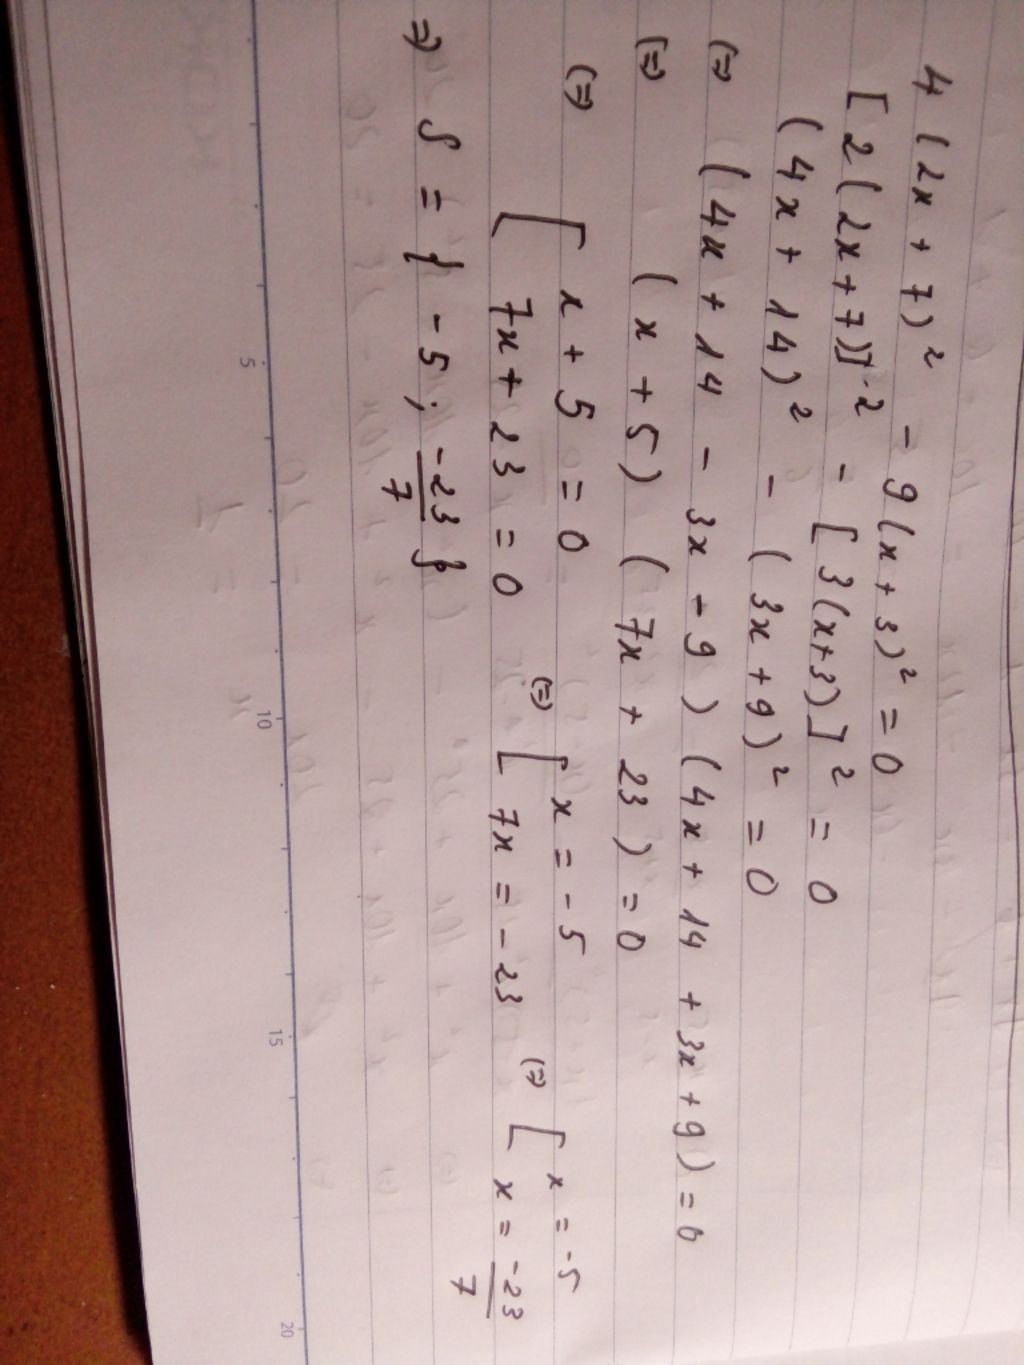 4 (2x + 7)² - 9(x + 3)² = 0
[ 2 (2x+7)]² - [ 3(x+3) ]² = 0
(4x + 14)² - ( 3x + 9)² = 0
(=) (4x + 14 - 3x - 9 ) (4x + 14 + 3x + 9) = 0
(=) ( x + 5) ( 7x + 23 ) = 0
(=) [ x + 5 = 0 (=) [ x = -5 (=) [ x = -5
7x + 23 = 0 7x = -23 x = -23/7
=) S = { -5 ; -23/7 }
5 10 15 20